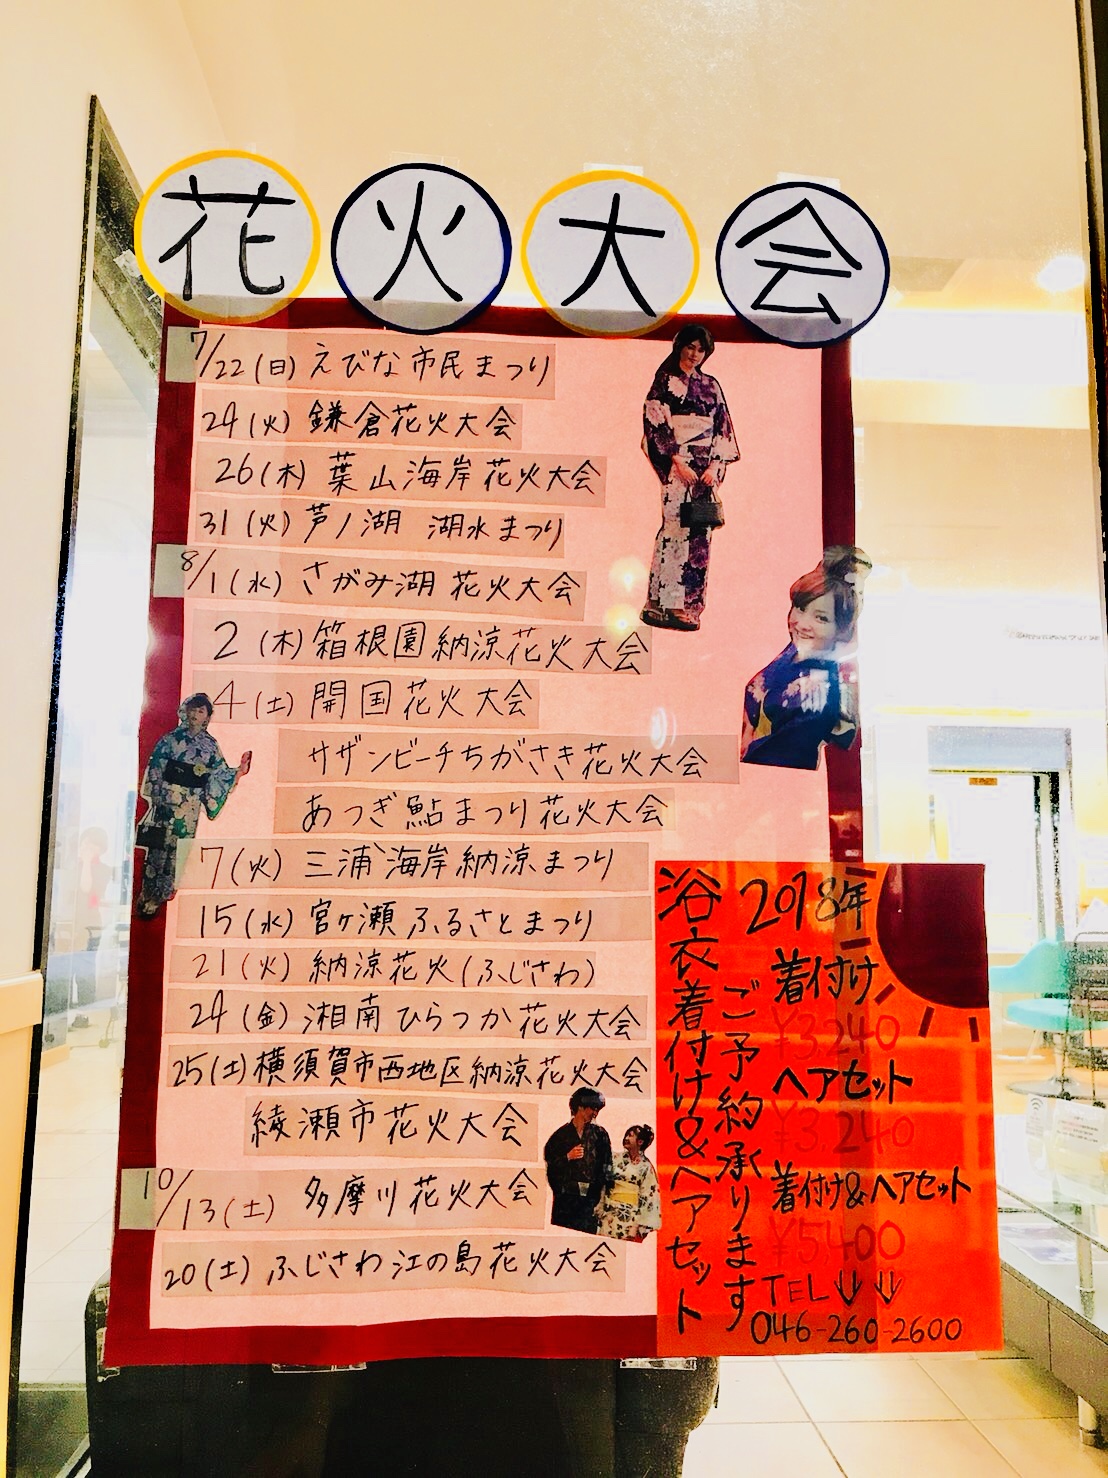 花火大会
7/22(日) えびな市民まつり
24(火) 鎌倉花火大会
26(木) 葉山海岸花火大会
31(火) 芦ノ湖 湖水まつり
8/1(水) さがみ湖花火大会
2(木) 箱根園納涼花火大会
4(土) 開国花火大会
サザンビーチちがさき花火大会
あつぎ鮎まつり花火大会
7(火) 三浦海岸納涼まつり
15(水) 宮ヶ瀬ふるさとまつり
21(火) 納涼花火(ふじさわ)
24(金) 湘南ひらつか花火大会
25(土) 横須賀市西地区納涼花火大会
綾瀬市花火大会
10/13(土) 多摩川花火大会
20(土) ふじさわ江の島花火大会
浴衣着付け&ヘアセット
ご予約承ります
2018年
着付け
¥3,240
ヘアセット
¥3,240
着付け&ヘアセット
¥5,400
TEL↓↓
046-260-2600